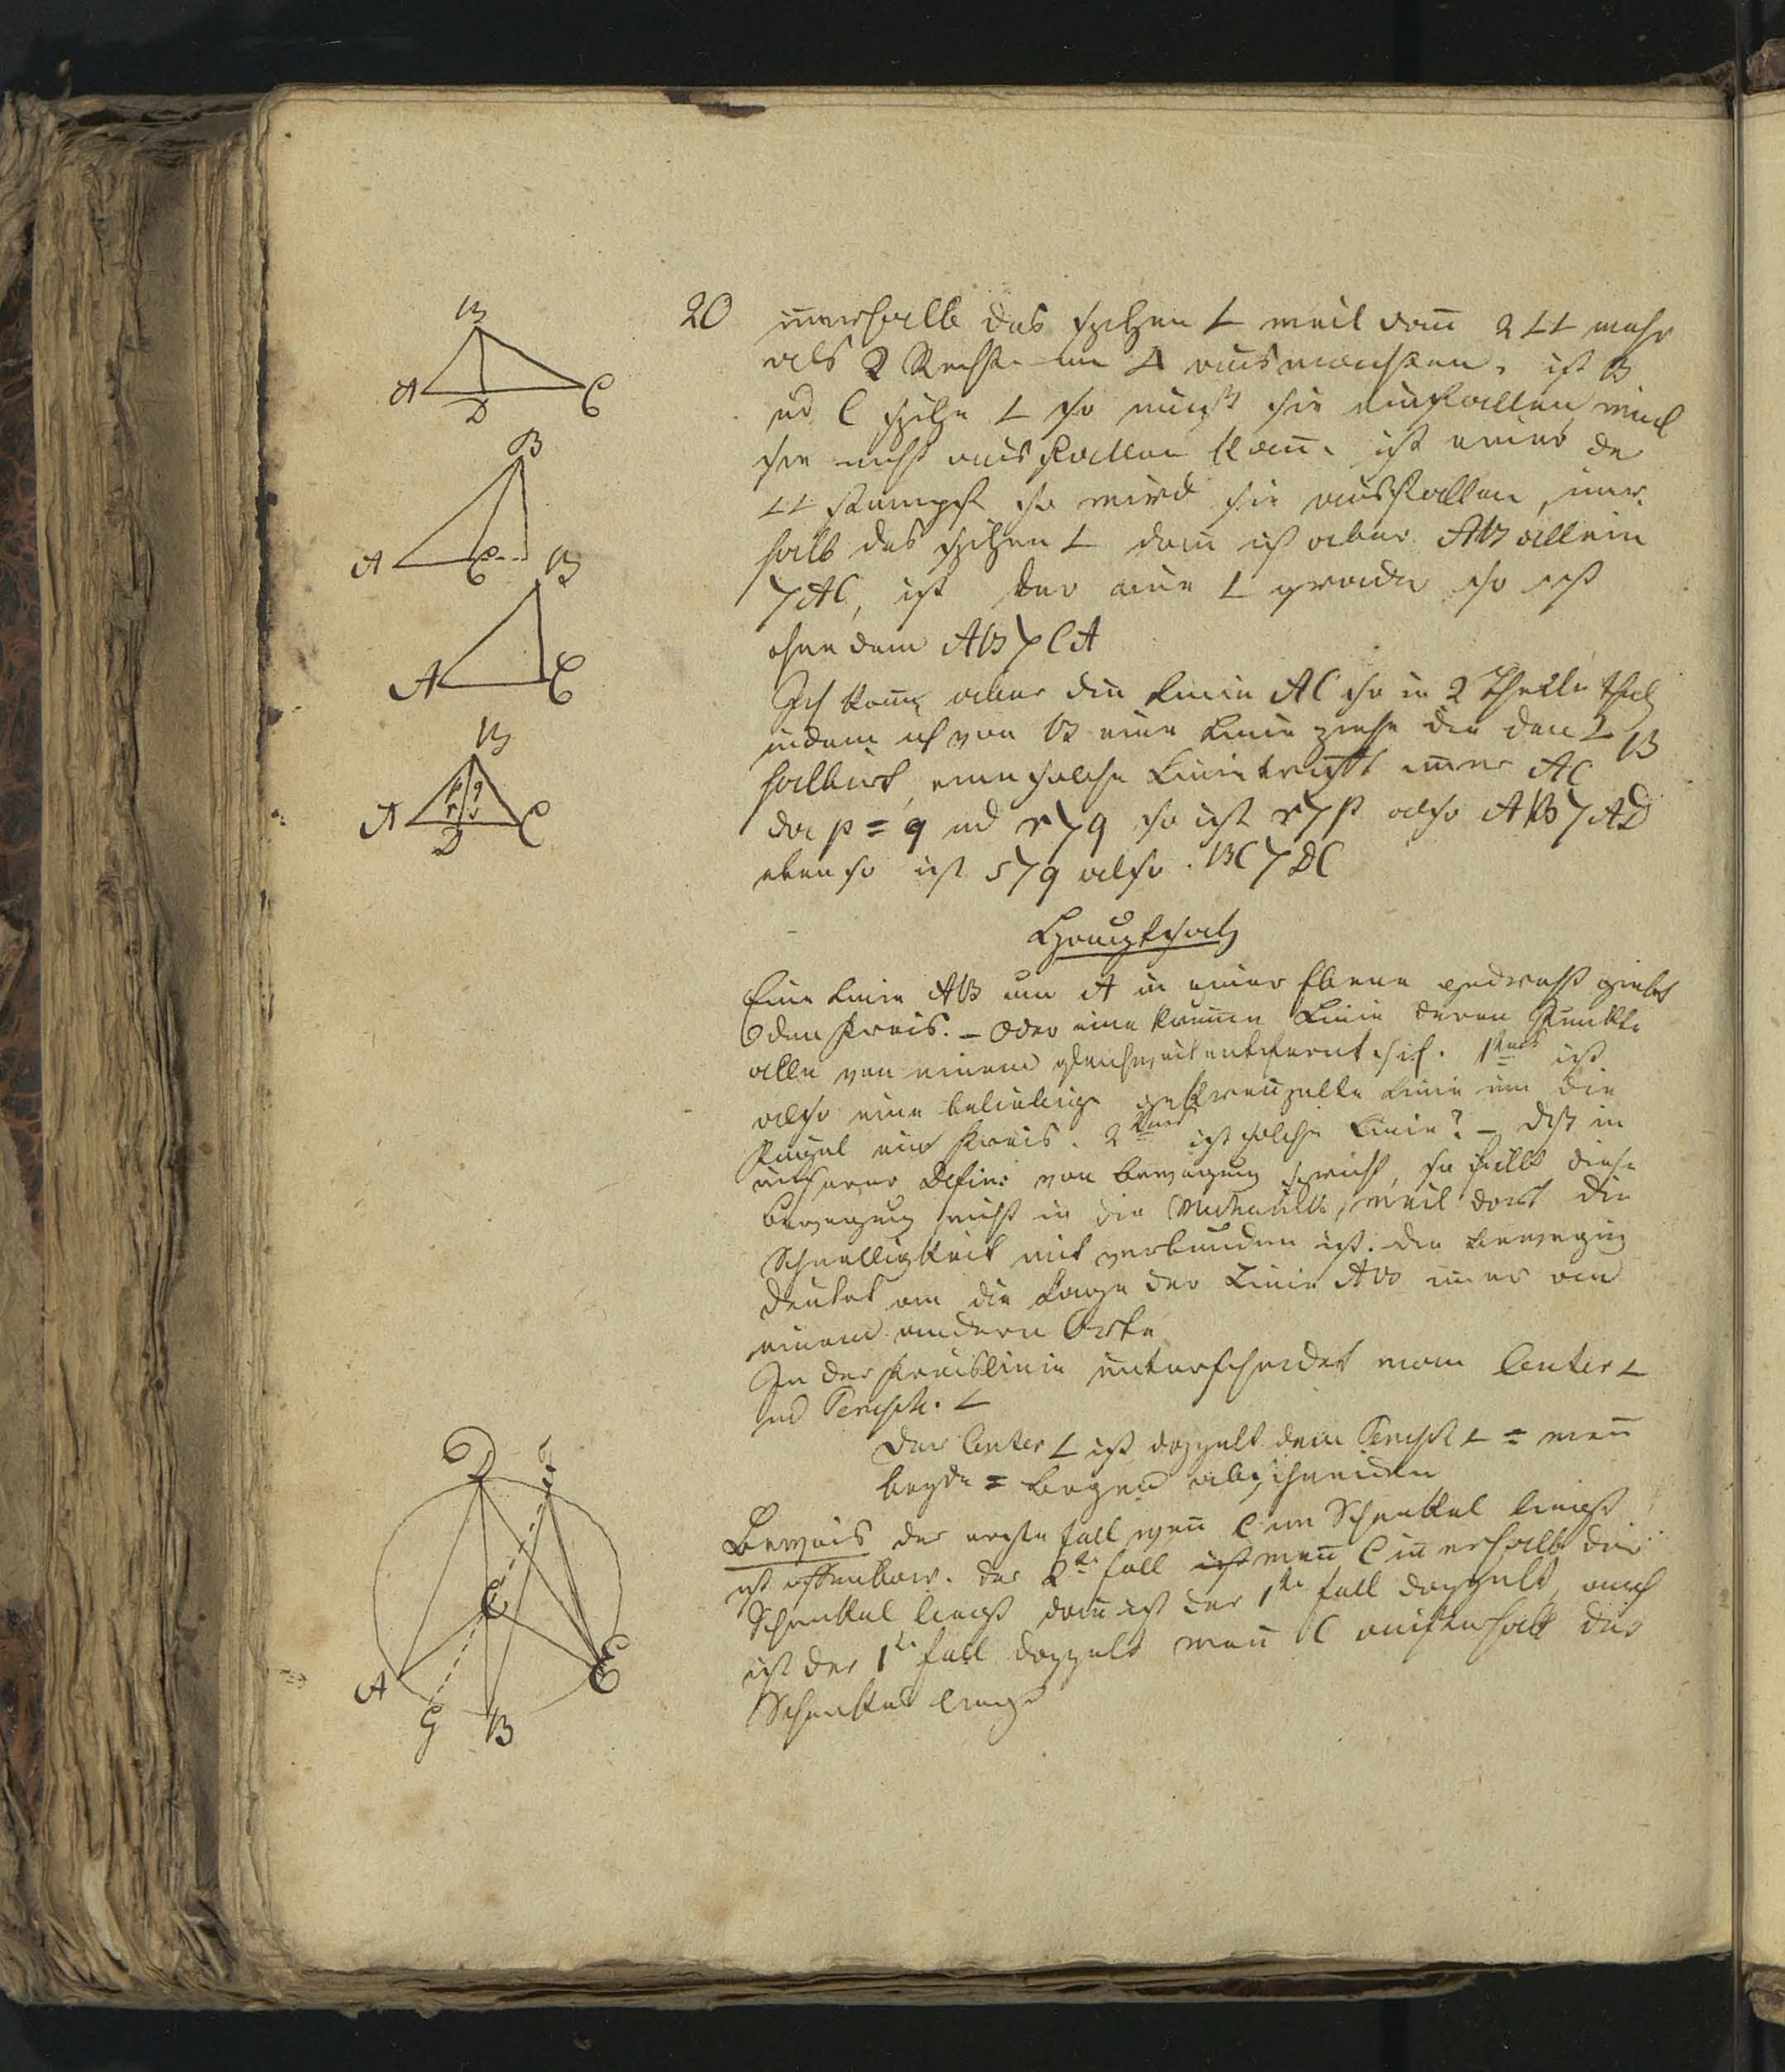 20
innerhalb des spitzen ∠ weil dann 2 ∠∠ mehr
als 2 Rechte im Δ ausmachten. ist B
ud C spitze ∠ so muß sie einfallen, weil
sie nicht ausfallen kann. ist einer der
∠∠ stumpf so wird sie ausfallen,
halb des spitzen ∠ dann ist aber AB allein
> AC, ist der eine ∠ grade so ist
ohne dem AB > CA
Ich kann aber die Linie AC so in 2 Theile theil
indem ich von B eine Linie ziehe die den ∠ B
halbirt, eine solche Linie trifft immer AC
da p = q ud r > q so ist r > p also AB > AD
eben so ist s > q also BC > DC
Hauptsatz
Eine Linie AB um A in einer Ebene gedreht giebt
den Kreis. – Oder eine krumme Linie deren Punkte
alle von einem gleichweit entfernt sind. 1tens ist
also eine beliebige Linie um die
Kugel ein Kreis. 2tens ist solche Linie? – Daß in
unserer Defin: von Bewegung spricht, so fällt diese
Bewegung nicht in die Mechanik, weil dort die
Schnelligkeit mit verbunden ist. die Bewegung
deutet an die Lage der Linie AB immer an
einem andern Orte
In der Kreislinie unterscheidet man Center ∠
und Periph. ∠
Der Center ∠ ist doppelt dem Periph ∠ = wenn
beyde = Bogen abschneiden
Beweis der erste Fall wenn C im Schenkel liegt
ist offenbar. der 2te Fall ist wenn C innerhalb der
Schenkel liegt dann ist der 1te Fall doppelt, auch
ist der 1te Fall doppelt wenn C außerhalb der
Schenkel liegt
B
A
D
C
B
A
C
B
A
C
B
p q
r s
A
D
C
D
F
C
A
G
B
E